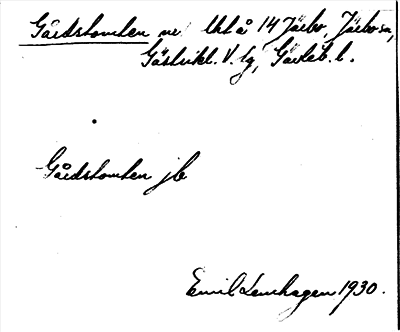 Gårdstomten ne Ultå 14 Järbo, Järbo sn,
Gästrikl. V. tg, Gävleb. l.
Gårdstomten jb
Emil Lenhagen 1930.